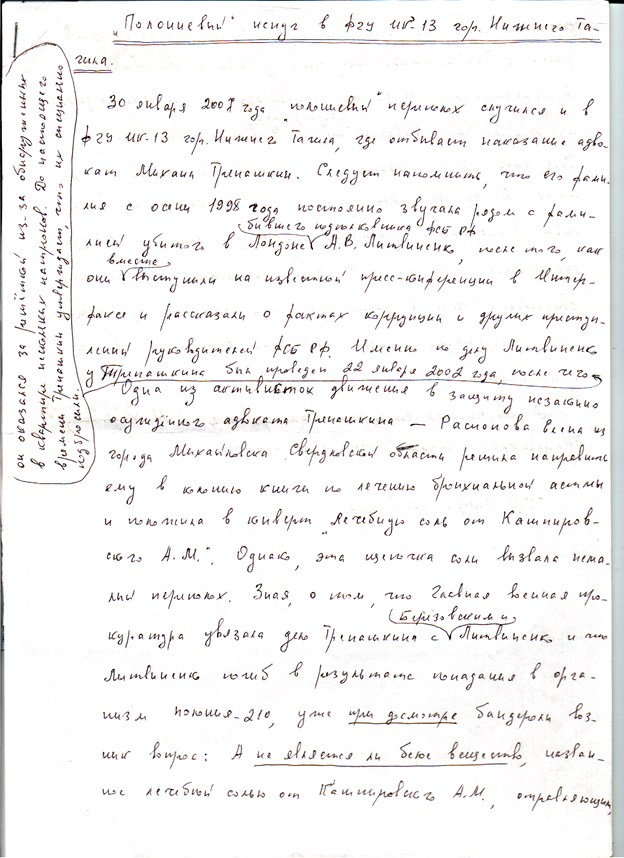 „Полониевый" испуг в ФГУ ИК-13 гор. Нижнего Та-
гила.
30 января 2007 года „полониевый" переполох случился и в
ФГУ ИК-13 гор. Нижнего Тагила, где отбывает наказание адво-
кат Михаил Трепашкин. Следует напомнить, что его фами-
лия с осени 1998 года постоянно звучала рядом с фами-
бывшего подполковника ФСБ РФ
лией убитого в Лондоне А.В. Литвиненко, после того, как
вместе
они выступили на известной пресс-конференции в Интер-
факсе и рассказали о фактах коррупции и других преступ-
лений руководителей ФСБ РФ. Именно по делу Литвиненко
у Трепашкина был проведен 22 января 2002 года, после чего
он оказался за решёткой из-за обнаруженных
в квартире нескольких патронов. До настоящего
времени Трепашкин утверждает, что их специально
подбросили.
Одна из активисток движения в защиту незаконно
осуждённого адвоката Трепашкина — Распопова Елена из
города Михайловска Свердловской области решила направить
ему в колонию книги по лечению бронхиальной астмы
и положила в конверт „Лечебную соль от Кашпиров-
ского А.М.". Однако, эта щепотка соли вызвала нема-
лый переполох. Зная, о том, что Главная военная про-
Березовским и
куратура увязала дело Трепашкина с Литвиненко и что
Литвиненко погиб в результате попадания в орга-
низм полония-210, уже при досмотре бандероли воз-
ник вопрос: А не является ли белое вещество, назван-
ное лечебной солью от Кашпировского А.М., отравляющим,